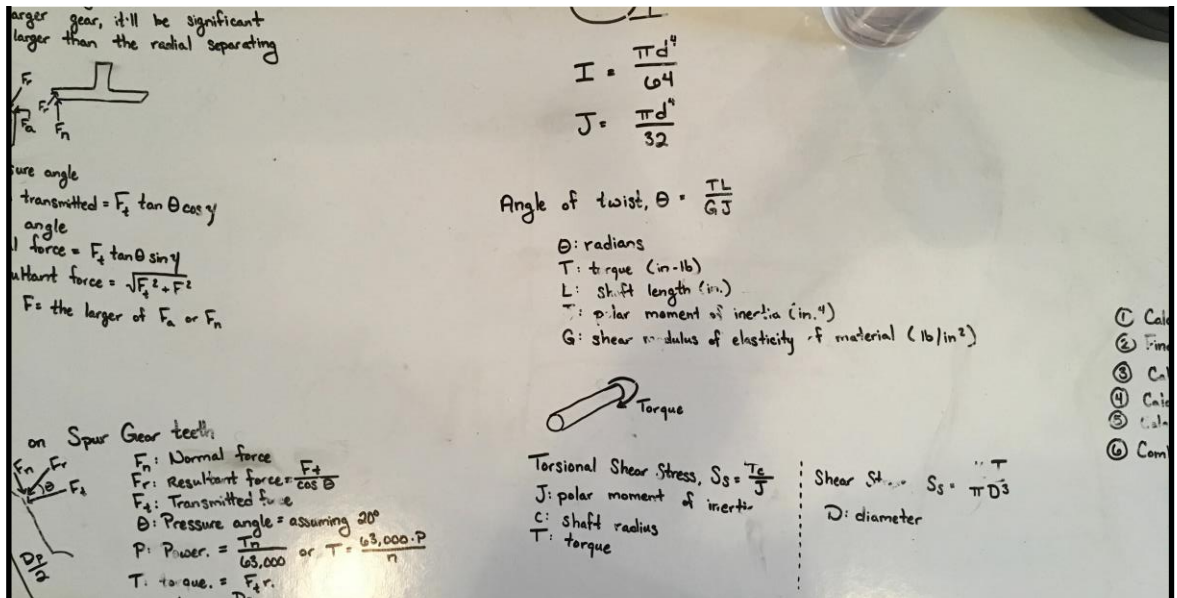 arger gear, it'll be significant
larger than the radial separating
Fr
Fr
Fa
Fn
sure angle
transmitted = Ft tan θ cos γ
angle
l force = Ft tan θ sin γ
ultant force = √Ft² + F²
F = the larger of Fa or Fn
on Spur Gear teeth
Fn Fr
θ
Ft
Dp/2
Fn: Normal force
Fr: Resultant force = Ft/cos θ
Ft: Transmitted force
θ: Pressure angle = assuming 20°
P: Power. = Tn/63,000 or T = 63,000·P/n
T: torque. = Ft r.
I = πd⁴/64
J = πd⁴/32
Angle of twist, θ = TL/GJ
θ: radians
T: torque (in-lb)
L: shaft length (in.)
: polar moment of inertia (in.⁴)
G: shear modulus of elasticity of material (lb/in²)
Torque
Torsional Shear Stress, Ss = Tc/J
J: polar moment of inertia
C: shaft radius
T: torque
Shear Ss = T/πD³
D: diameter
① Calc
② Fin
③ Cal
④ Calc
⑤
⑥ Com